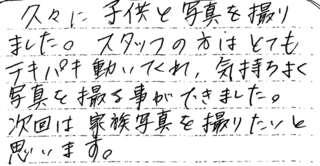 久々に子供と写真を撮り
ました。スタッフの方はとても
テキパキ動いてくれ、気持ちよく
写真を撮る事ができました。
次回は家族写真を撮りたいと
思います。